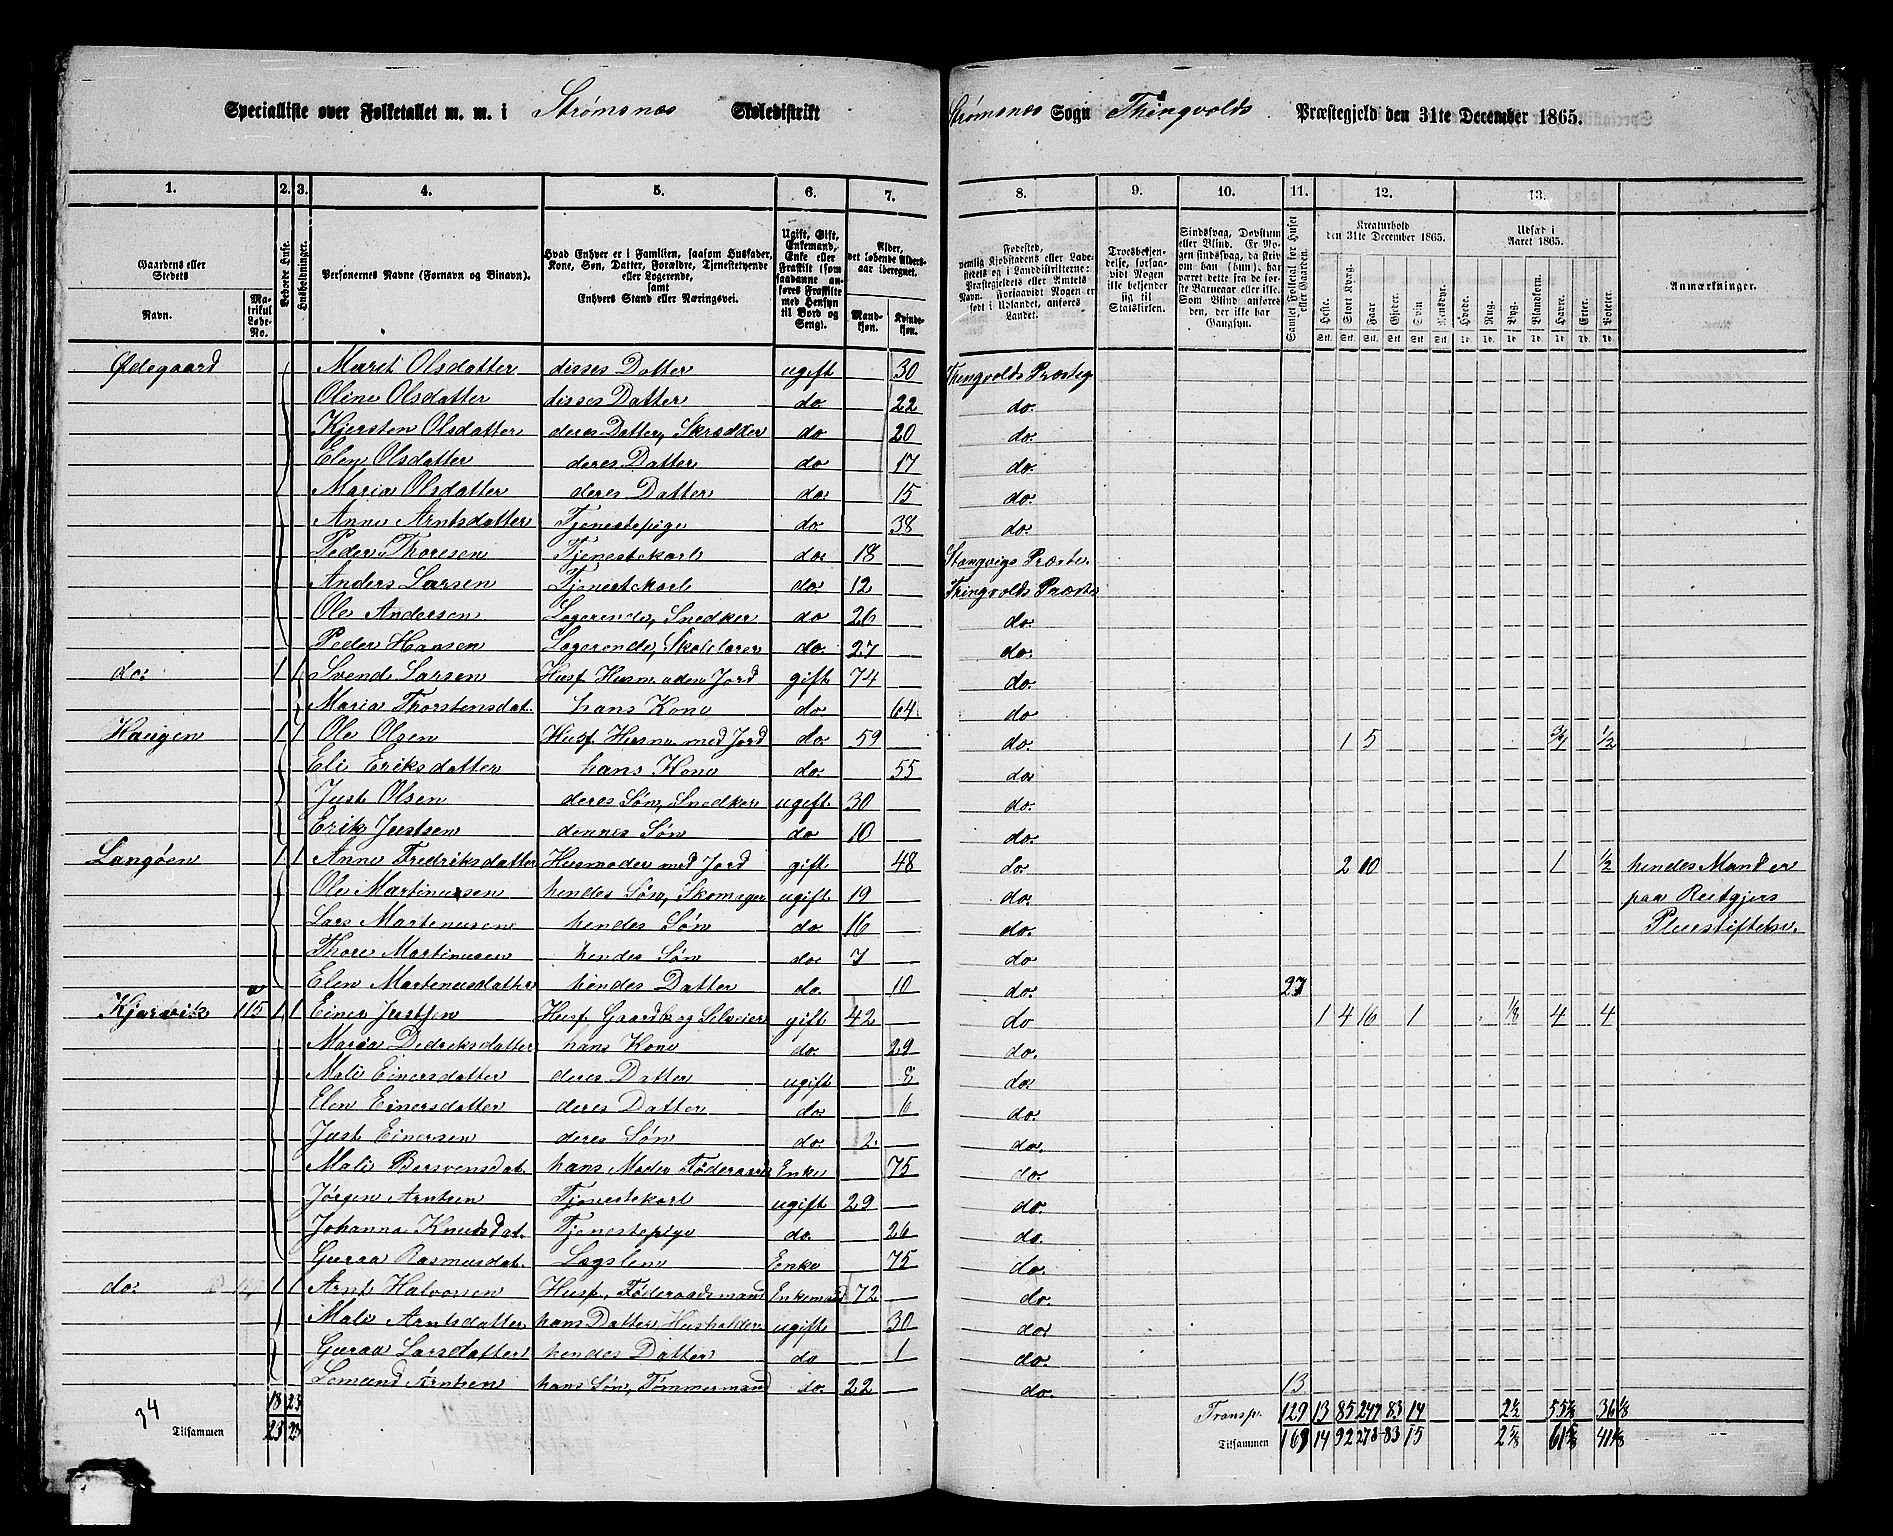 Specialliste over Folketallet m. m. i Strømsnæs Skoledistrikt Strømsnæs Sogn Thingvolds Præstegjeld den 31te December 1865.
1. 2. 3. 4. 5. 6. 7. 8. 9. 10. 11. 12. 13.
Gaardens eller Stedets
Navn. Matrikul Løbe-No.
Beboede Huse.
Husholdninger.
Personernes Navne (Fornavn og Binavn).
Hvad Enhver er i Familien, saasom Husfader, Kone, Søn, Datter, Forældre, Tjenestetyende eller Logerende, samt Enhvers Stand eller Næringsvei.
Ugift, Gift, Enkemand, Enke eller Fraskilt (som saadanne anføres Fraskilte med Hensyn til Bord og Seng).
Alder, det løbende Aldersaar iberegnet.
Mandkjøn. Kvindekjøn.
Fødested,
Troesbekjendelse, forsaavidt Nogen ikke bekjender sig til Statskirken.
Samlet Folketal for Huset eller Gaarden.
Kreaturhold den 31te December 1865.
Heste. Stort Kvæg. Faar. Gjeder. Svin. Rensdyr.
Udsæd i Aaret 1865.
Hvede. Rug. Byg. Blandkorn. Havre. Erter. Poteter.
Anmærkninger.
Ødegaard Maret Olsdatter disses Datter ugift 30 Thingvolds Præsteg
Oline Olsdatter disses Datter do. 22 do.
Kjersten Olsdatter deres Datter, Skrædder do 20 do.
Elen Olsdatter deres Datter do. 17 do.
Maria Olsdatter deres Datter do. 15 do.
Anne Arntsdatter Tjenestepige do. 38 do.
Peder Thoresen Tjenestekarl do. 18 Stangvigs Præste.
Anders Larsen Tjenestekarl do. 12 Thingvolds Præste
Ole Andersen Logerende, Snedker do 26 do.
Peder Hansen Logerende, Skolelærer do. 27 do.
do. 1 1 Svend Larsen Husf Husm uden Jord gift 74 do.
Maria Thorstensdat. hans Kone do. 64. do
Haugen 1 1 Ole Olsen Husf Husm med Jord do. 59 do. 1 5 3/4 1/2
Eli Eriksdatter hans Kone do. 55 do
Just Olsen deres Søn, Snedker ugift 30 do.
Erik Justsen dennes Søn do 10 do.
Langøen 1 1 Anne Fredriksdatter Husmoder med Jord gift 48 do. 2 10 1 1/2 hendes Mand er
Ole Martinussen hendes Søn, Skomager ugift 19 do. paa Reitgjers
Lars Martenusen hendes Søn do. 16 do. Pleiestiftelse.
Thore Martinusen hendes Søn do 7 do
Elen Martenusdatter hendes Datter do. 10 do. 27
Kjørvik 115 a 1 1 Einer Justsen Husf Gaardb og Selveier gift 42 do 1 4 16 1 1/8 4 4
Maria Dedriksdatter hans Kone do. 29 do.
Mali Einersdatter deres Datter ugift 8 do.
Elen Einersdatter deres Datter do. 6 do.
Just Einersen deres Søn do. 2. do.
Mali Bersvensdat. hans Moder Føderaads Enke 75 do.
Jørgen Arntsen Tjenestekarl ugift 29 do.
Johanna Knudsdat. Tjenestepige do. 26 do.
Guraa Rasmusdat. Lægslem Enke 75 do.
do. 1 1 Arnt Halvorsen Husf, Føderaadsmand Enkemand 72 do.
Mali Arntsdatter hans Datter Husholder ugift 30 do
Guraa Larsdatter hendes Datter do 1 do.
Lemund Arntsen hans Søn, Tømmermand do. 22 do. 13
34 18 23 Transp. 129 13 85 247 83 14 2 1/2 55 7/8 36 1/8
Tilsammen 23 23 Tilsammen 169 14 92 278 83 15 2 5/8 61 5/8 41 1/8